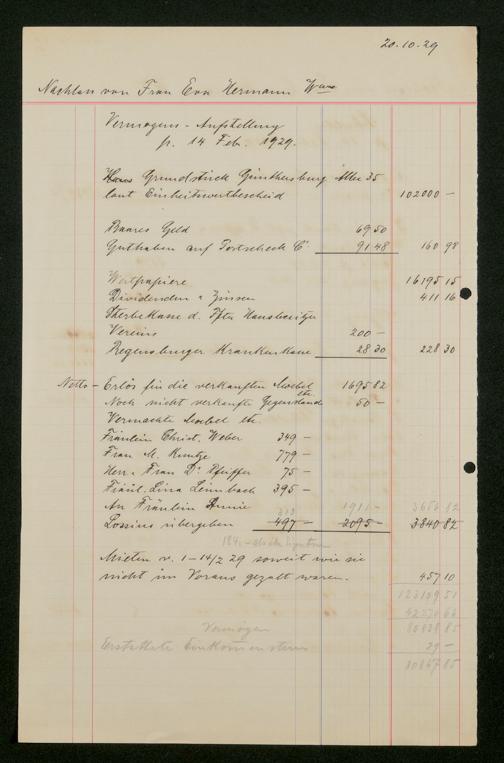 20.10.29
Nachlass von Frau Eva Hermann Wwe
Vermögens-Aufstellung
p. 14 Feb. 1929.
Haus Grundstück Günthersburg Allee 35
laut Einheitswertbescheid 102000 –
Baares Geld 69 50
Guthaben auf Postscheck C. 91 48 160 98
Wertpapiere 16195 15
Dividenden u Zinsen 411 16
Sterbekasse d. Hausbesitzer
Vereins 200 –
Regensburger Krankenkasse 28 30 228 30
Netto – Erlös für die verkauften Moebel 1695 82
Noch nicht verkaufte Gegenstände etc. 50 –
Vermachte Moebel etc.
Fräulein Christ. Weber 349 –
Frau M. Kuntze 779 –
Herr u Frau Dr Pfeiffer 75 –
Fräul. Lina Leimbach 395 –
An Fräulein Annie 313 1911 – 3656 82
Lossius übergeben 497 – 2095 – 3840 82
184.–
Mieten v. 1–14/2 29 soweit wie sie
nicht im Voraus gezalt waren. 457 10
123109 51
42270 66
Vermögen 80838 85
Erstattete Einkommensteuer 29 –
80867 85